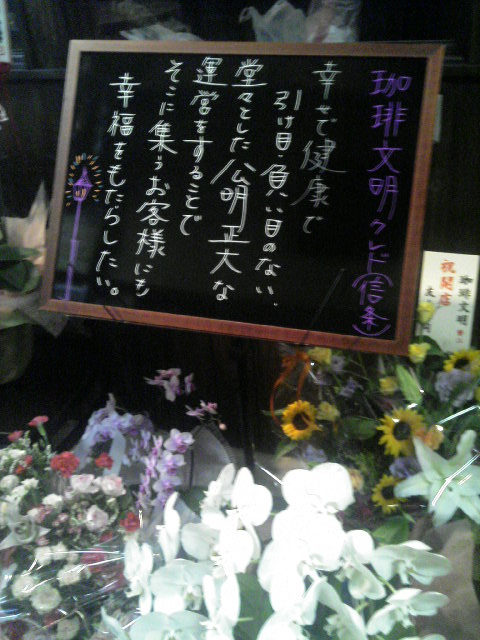 珈琲文明クレド(信条)
幸せで健康で
引け目・負い目のない、
堂々とした公明正大な
運営をすることで
そこに集うお客様にも
幸福をもたらしたい。
珈琲文明
祝開店